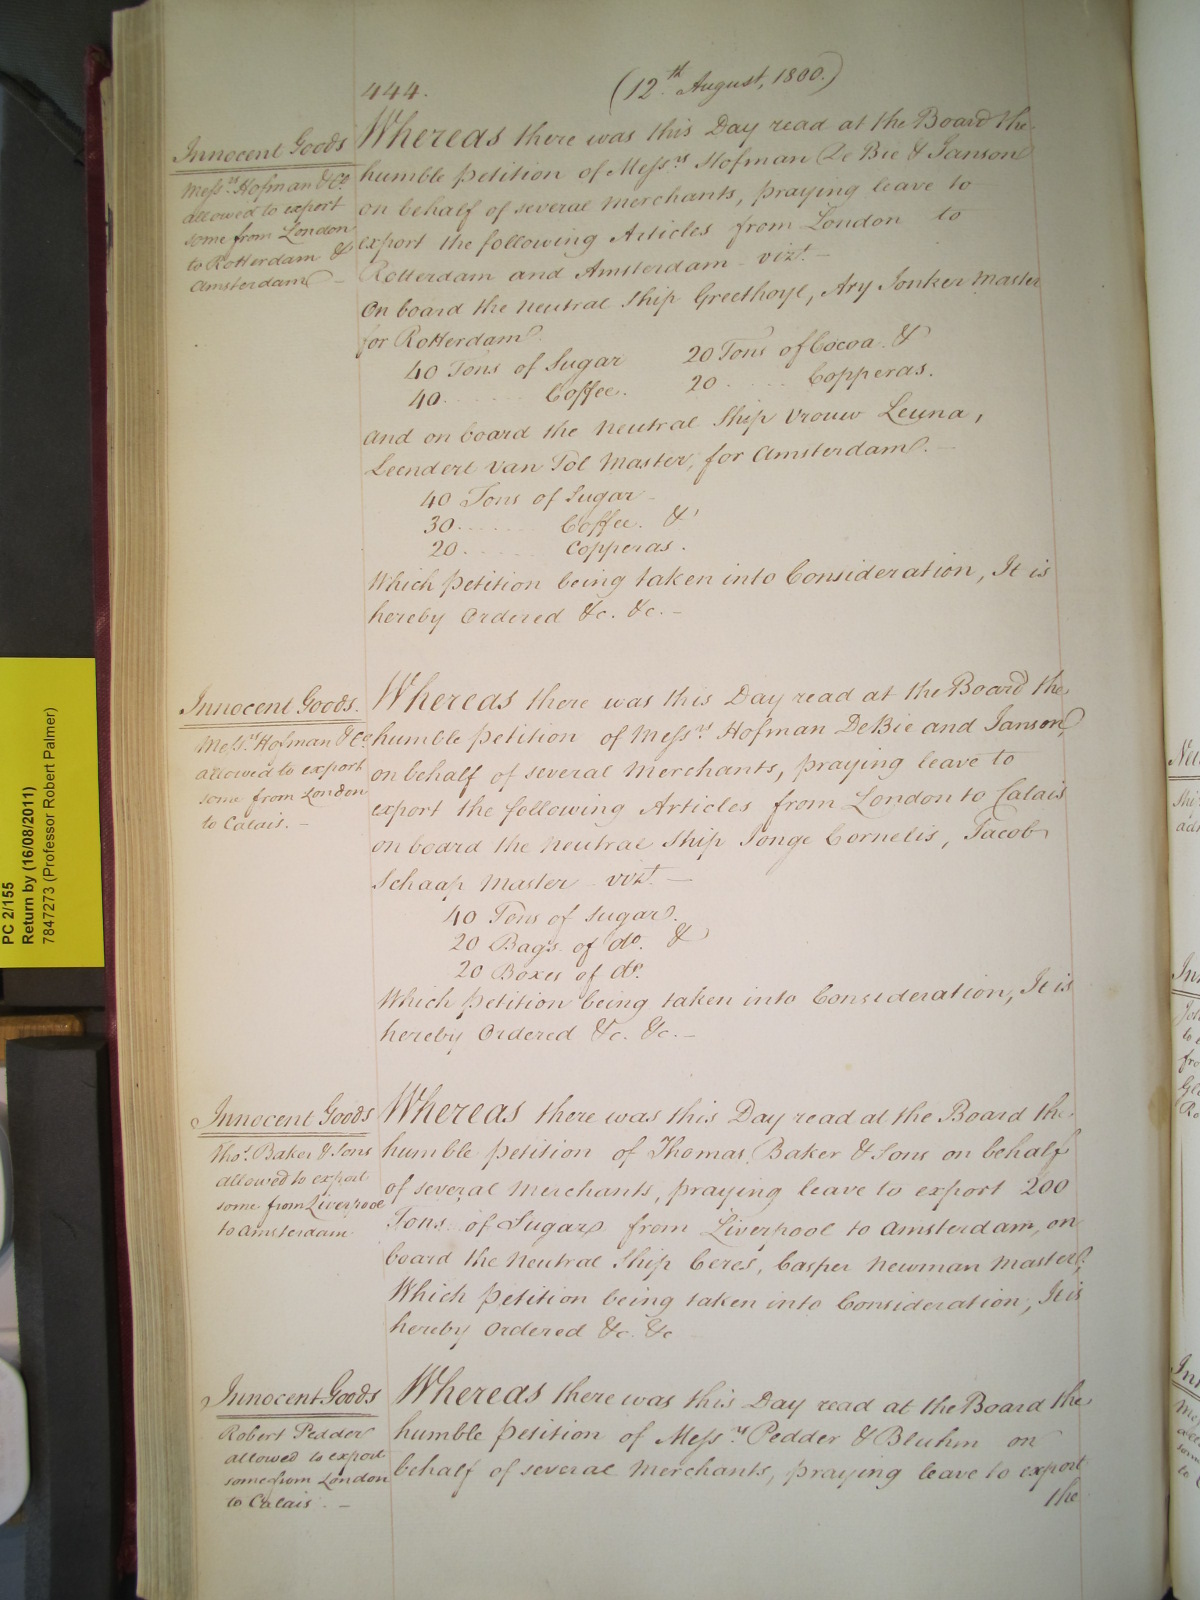 444.
(12th August, 1800.)
Innocent Goods
Messrs Hofman & Co
allowed to export
some from London
to Rotterdam &
Amsterdam —
Whereas there was this Day read at the Board the
humble petition of Messrs Hofman De Bie & Janson
on behalf of several Merchants, praying leave to
export the following Articles from London to
Rotterdam and Amsterdam - vizt. —
On board the Neutral Ship Greethoyl, Ary Jonker Master
for Rotterdam
40 Tons of Sugar 20 Tons of Cocoa. &
40 ........ Coffee. 20 ..... Copperas.
And on board the Neutral Ship Vrouw Leuna,
Leendert Van Tol Master, for Amsterdam. —
40 Tons of Sugar
30 ....... Coffee. &
20 ....... Copperas.
Which petition being taken into Consideration, It is
hereby Ordered &c. &c. —
Innocent Goods.
Messrs Hofman & Co
allowed to export
some from London
to Calais. —
Whereas there was this Day read at the Board the
humble petition of Messrs Hofman De Bie and Janson,
on behalf of several Merchants, praying leave to
export the following Articles from London to Calais
on board the Neutral Ship Jonge Cornelis, Jacob
Schaap Master - vizt. —
40 Tons of Sugar.
20 Bags of do. &
20 Boxes of do.
Which petition being taken into Consideration, It is
hereby Ordered &c. &c. —
Innocent Goods
Thos. Baker & Sons
allowed to export
some from Liverpool
to Amsterdam
Whereas there was this Day read at the Board the
humble petition of Thomas Baker & Sons on behalf
of several Merchants, praying leave to export 200
Tons of Sugar from Liverpool to Amsterdam, on
board the Neutral Ship Ceres, Casper Newman Master,
Which petition being taken into Consideration, It is
hereby Ordered &c. &c
Innocent Goods
Robert Pedder
allowed to export
some from London
to Calais. —
Whereas there was this Day read at the Board the
humble petition of Messrs Pedder & Bluhm on
behalf of several Merchants, praying leave to export
the
PC 2/155
Return by (16/08/2011)
7847273 (Professor Robert Palmer)